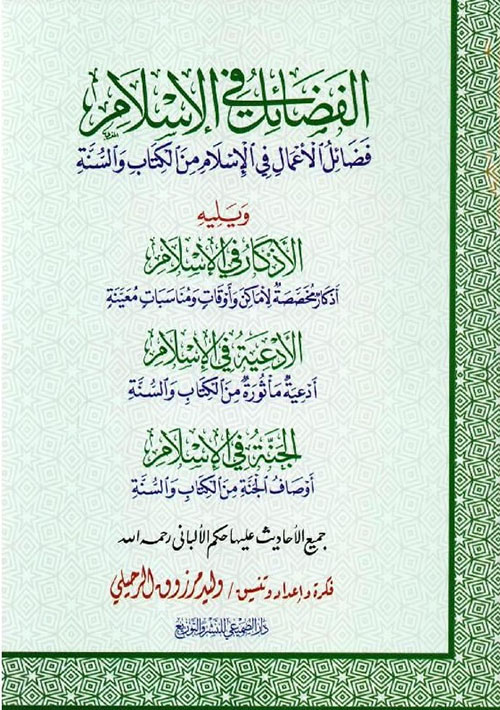 الفَضَائِلُ فِي الإِسْلَامِ
فَضَائِلُ الأَعْمَالِ فِي الإِسْلَامِ مِنَ الكِتَابِ وَالسُّنَّةِ
وَيَلِيهِ
الأَذْكَارُ فِي الإِسْلَامِ
أَذْكَارٌ مُخَصَّصَةٌ لِأَمَاكِنَ وَأَوْقَاتٍ وَمُنَاسَبَاتٍ مُعَيَّنَةٍ
الأَدْعِيَةُ فِي الإِسْلَامِ
أَدْعِيَةٌ مَأْثُورَةٌ مِنَ الكِتَابِ وَالسُّنَّةِ
الجَنَّةُ فِي الإِسْلَامِ
أَوْصَافُ الجَنَّةِ مِنَ الكِتَابِ وَالسُّنَّةِ
جميع الأحاديث عليها حكم الألباني رحمه الله
فكرة وإعداد وتنسيق / وليد مرزوق الرحيلي
دار الصميعي للنشر والتوزيع